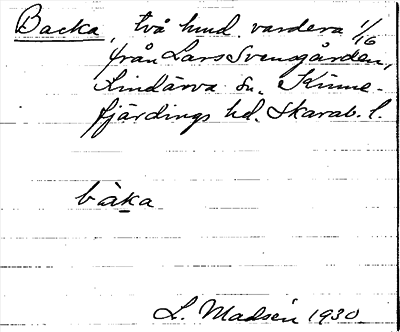 Backa, två hmd. vardera 1/16
från Lars Svensgården,
Lindärva sn. Kinne-
fjärdings hd. Skarab. l.
bàka
L. Madsén 1930